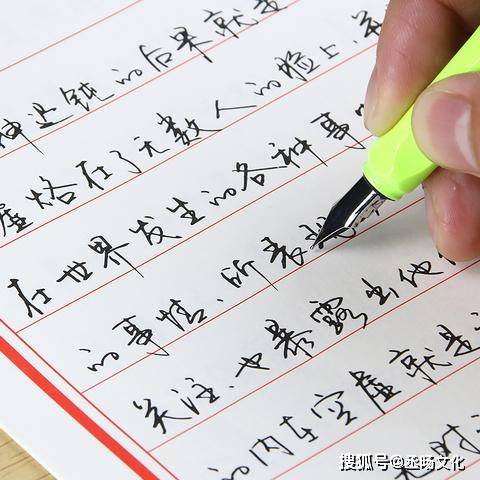 神迟钝的后果就是
虚烙在了无数人的脸上，
在世界发生的各种事
的事情，所表现
关注，也暴露出他
的内在空虚就是
搜狐号@丞旸文化